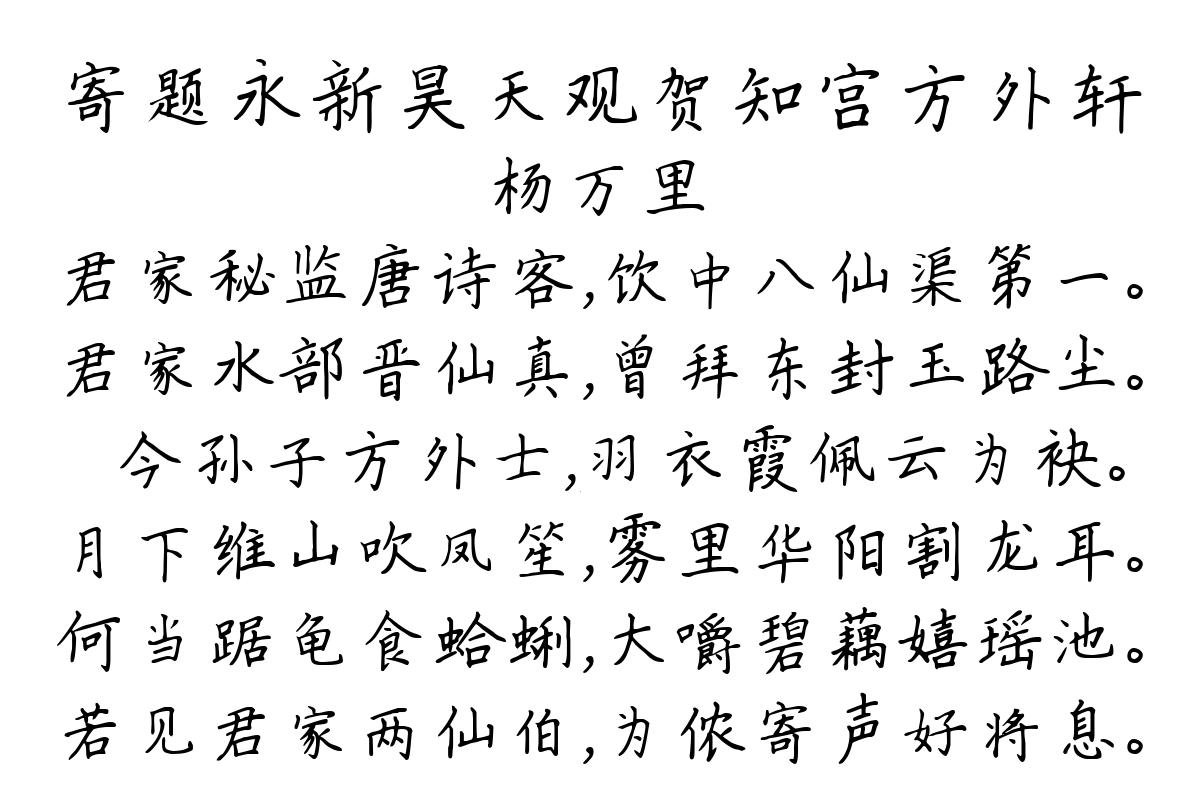 寄题永新昊天观贺知宫方外轩
杨万里
君家秘监唐诗客,饮中八仙渠第一。
君家水部晋仙真,曾拜东封玉路尘。
今孙子方外士,羽衣霞佩云为袂。
月下维山吹凤笙,雾里华阳割龙耳。
何当踞龟食蛤蜊,大嚼碧藕嬉瑶池。
若见君家两仙伯,为侬寄声好将息。